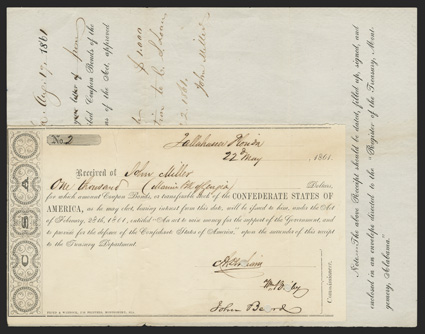 Aug. 17, 1861
from
Coupon Bonds of the
of the Act, approved
$1.000
2, 1861.
John Miller
No. 2
Tallahassee Florida
22d May 1861.
Received of John Miller
One thousand Dollars,
for which amount Coupon Bonds, or transferable Stock of the CONFEDERATE STATES OF
AMERICA, as he may elect, bearing interest from this date, will be issued to him, under the Act
of February, 28th, 1861, entitled "An act to raise money for the support of the Government, and
to provide for the defence of the Confederate States of America," upon the surrender of this receipt
to the Treasury Department.
John Beard
Commissioners.
C S A
Note—The above Receipt should be dated, filled up, signed, and
enclosed in an envelope directed to the "Register of the Treasury, Mont-
gomery, Alabama."